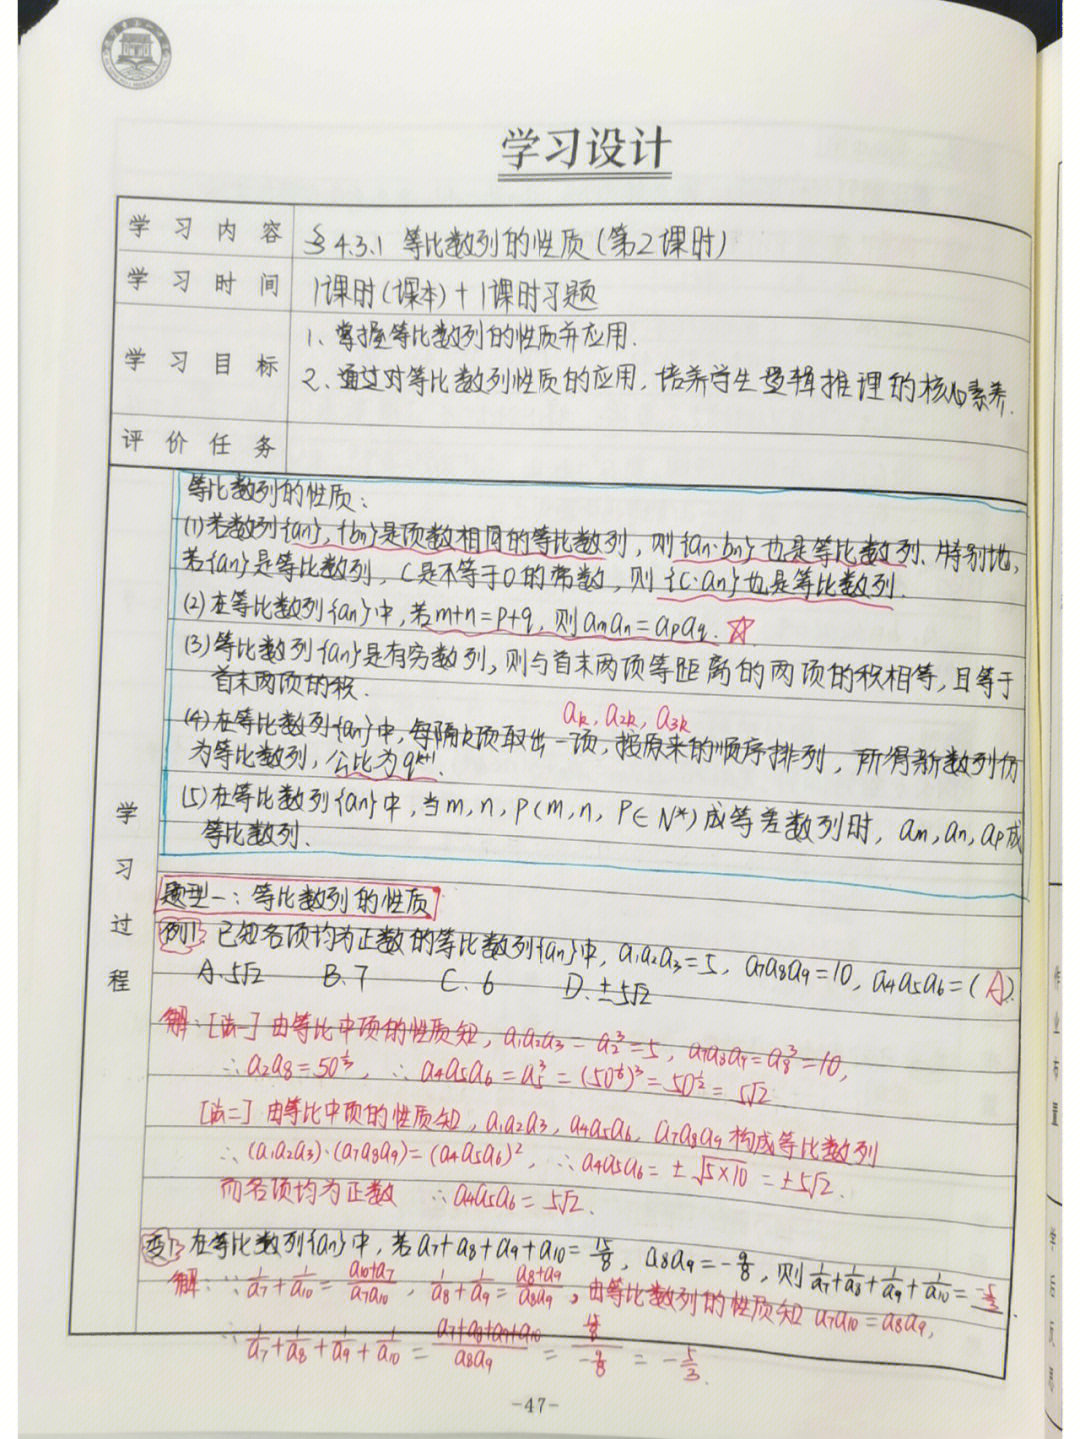 学习设计
学习内容 §4.3.1 等比数列的性质(第2课时)
学习时间 1课时(课本)+1课时习题
学习目标 1、掌握等比数列的性质并应用.
2、通过对等比数列性质的应用,培养学生逻辑推理的核心素养.
评价任务
学习过程
等比数列的性质:
(1)若数列{an},{bn}是项数相同的等比数列,则{an·bn}也是等比数列.特别地,
若{an}是等比数列,C是不等于0的常数,则{C·an}也是等比数列.
(2)在等比数列{an}中,若m+n=p+q,则aman=apaq.☆
(3)等比数列{an}是有穷数列,则与首末两项等距离的两项的积相等,且等于
首末两项的积.
ak,a2k,a3k
(4)在等比数列{an}中,每隔k项取出一项,按原来的顺序排列,所得新数列仍
为等比数列,公比为q^k+1.
(5)在等比数列{an}中,当m,n,p(m,n,p∈N*)成等差数列时,am,an,ap成
等比数列.
题型一:等比数列的性质
例1 已知各项均为正数的等比数列{an}中,a1a2a3=5,a7a8a9=10,a4a5a6=(A).
A.5√2 B.7 C.6 D.±5√2
解:[法一]由等比中项的性质知,a1a2a3=a2³=5,a7a8a9=a8³=10,
∴a2a8=50^1/3,∴a4a5a6=a5³=(50^1/6)³=50^1/2=5√2
[法二]由等比中项的性质知,a1a2a3,a4a5a6,a7a8a9构成等比数列
∴(a1a2a3)·(a7a8a9)=(a4a5a6)²,∴a4a5a6=±√5×10=±5√2.
而各项均为正数 ∴a4a5a6=5√2.
变1 在等比数列{an}中,若a7+a8+a9+a10=15/8,a8a9=-9/8,则1/a7+1/a8+1/a9+1/a10=-5/3.
解:∵1/a7+1/a10=a10+a7/a7a10,1/a8+1/a9=a8+a9/a8a9,由等比数列的性质知a7a10=a8a9,
∴1/a7+1/a8+1/a9+1/a10=a7+a8+a9+a10/a8a9=15/8/-9/8=-5/3.
-47-